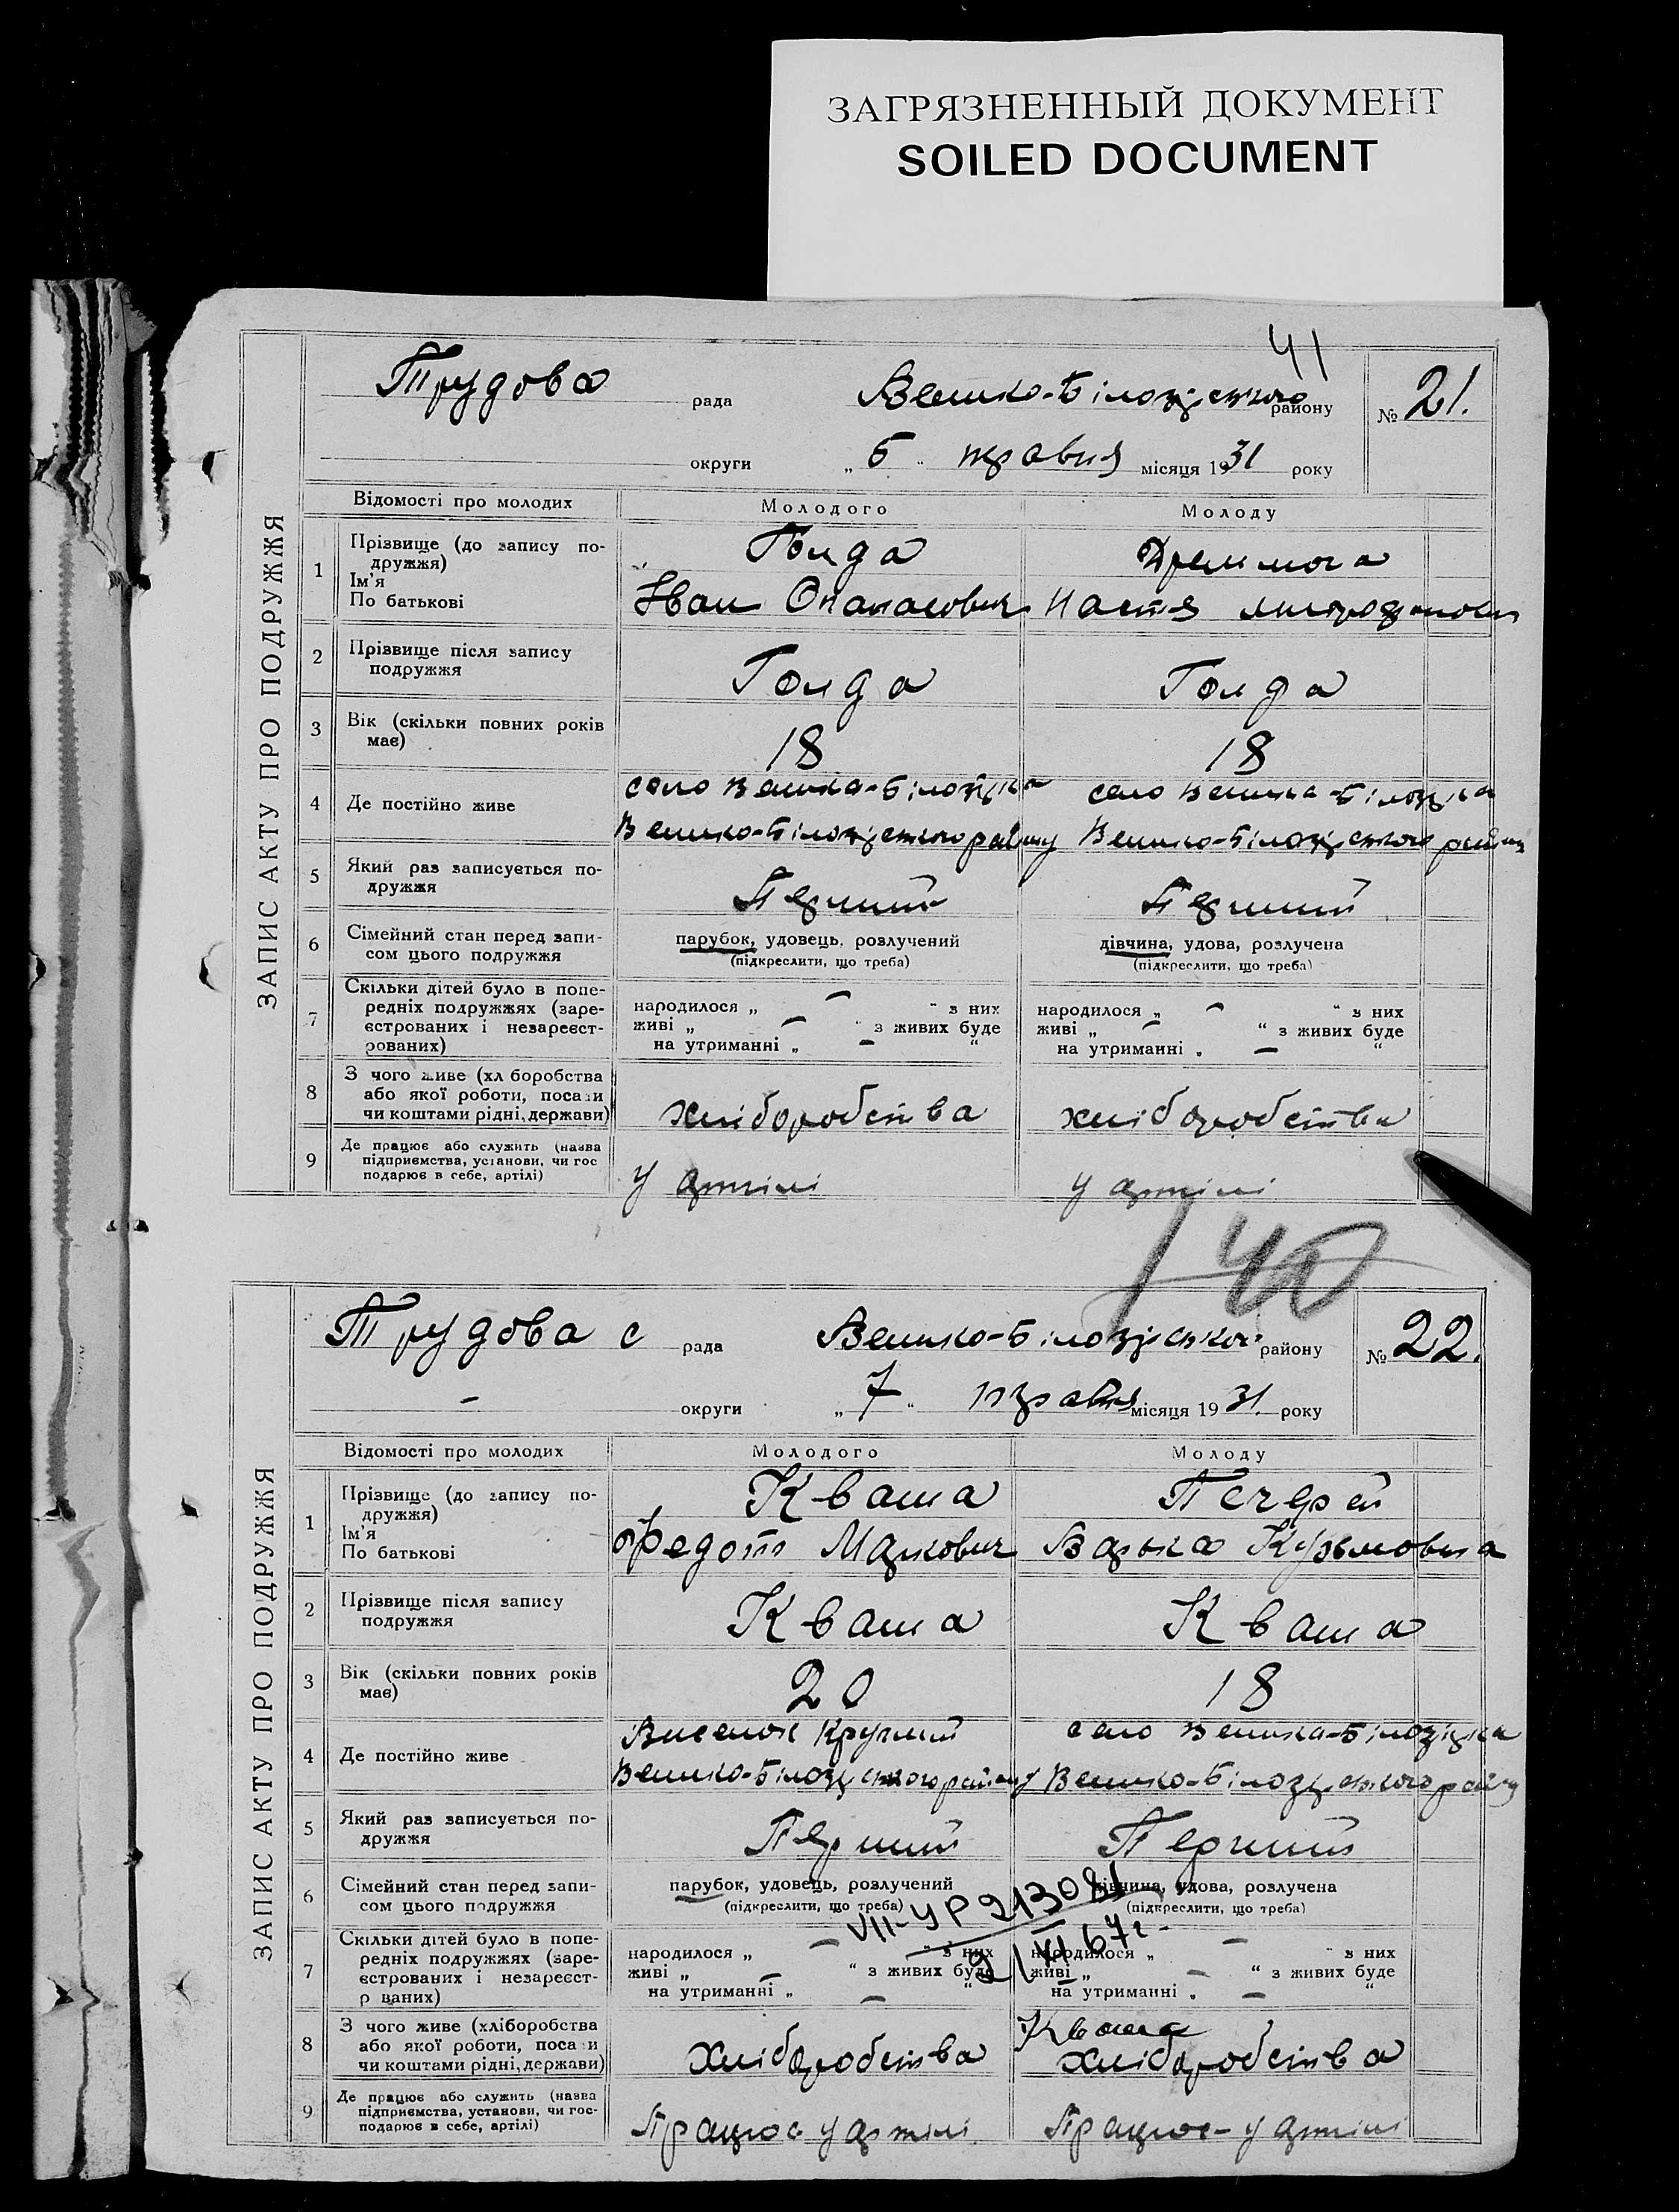 ЗАГРЯЗНЕННЫЙ ДОКУМЕНТ
SOILED DOCUMENT
41
ЗАПИС АКТУ ПРО ПОДРУЖЖЯ
Трудова рада Велико-Білозірського району № 21.
округи „ 5 " травня місяця 1931 року
Відомості про молодих Молодого Молоду
1 Прізвище (до запису по-
дружжя)
Ім'я
По батькові
Гонда
Іван Опанасович Настя
2 Прізвище після запису
подружжя
Гонда Гонда
3 Вік (скільки повних років
має)
18 18
4 Де постійно живе
село Велика-Білозірка село Велика-Білозірка
Велико-Білозірського району Велико-Білозірського району
5 Який раз записується по-
дружжя
Перший Перший
6 Сімейний стан перед запи-
сом цього подружжя
парубок, удовець, розлучений дівчина, удова, розлучена
(підкреслити, що треба) (підкреслити, що треба)
7 Скільки дітей було в попе-
редніх подружжях (заре-
єстрованих і незареєст-
рованих)
народилося „ — " з них народилося „ — " з них
живі „ — " з живих буде живі „ — " з живих буде
на утриманні „ — " на утриманні „ — "
8 З чого живе (хл боробства
або якої роботи, посади
чи коштами рідні, держави)
хліборобства хліборобства
9 Де працює або служить (назва
підприємства, установи, чи гос
подарює в себе, артілі)
у артілі у артілі
40
ЗАПИС АКТУ ПРО ПОДРУЖЖЯ
Трудова с рада Велико-Білозірського району № 22.
— округи „ 7 " травня місяця 1931. року
Відомості про молодих Молодого Молоду
1 Прізвище (до запису по-
дружжя)
Ім'я
По батькові
Кваша Печерей
Федот Маркович Варька Кузьмовна
2 Прізвище після запису
подружжя
Кваша Кваша
3 Вік (скільки повних років
має)
20 18
4 Де постійно живе
Виселок Круглий село Велика-Білозірка
Велико-Білозірського району Велико-Білозірського району
5 Який раз записується по-
дружжя
Перший Перший
6 Сімейний стан перед запи-
сом цього подружжя
парубок, удовець, розлучений дівчина, удова, розлучена
(підкреслити, що треба) (підкреслити, що треба)
VII-УР 213081
21/XI 67г.
7 Скільки дітей було в попе-
редніх подружжях (заре-
єстрованих і незареєст-
р ваних)
народилося „ — " з них народилося „ — " з них
живі „ — " з живих буде живі „ — " з живих буде
на утриманні „ — " на утриманні „ — "
Кваша
8 З чого живе (хліборобства
або якої роботи, посади
чи коштами рідні, держави)
Хліборобства хліборобства
9 Де працює або служить (назва
підприємства, установи, чи гос-
подарює в себе, артілі)
Працює у артілі Працює у артілі